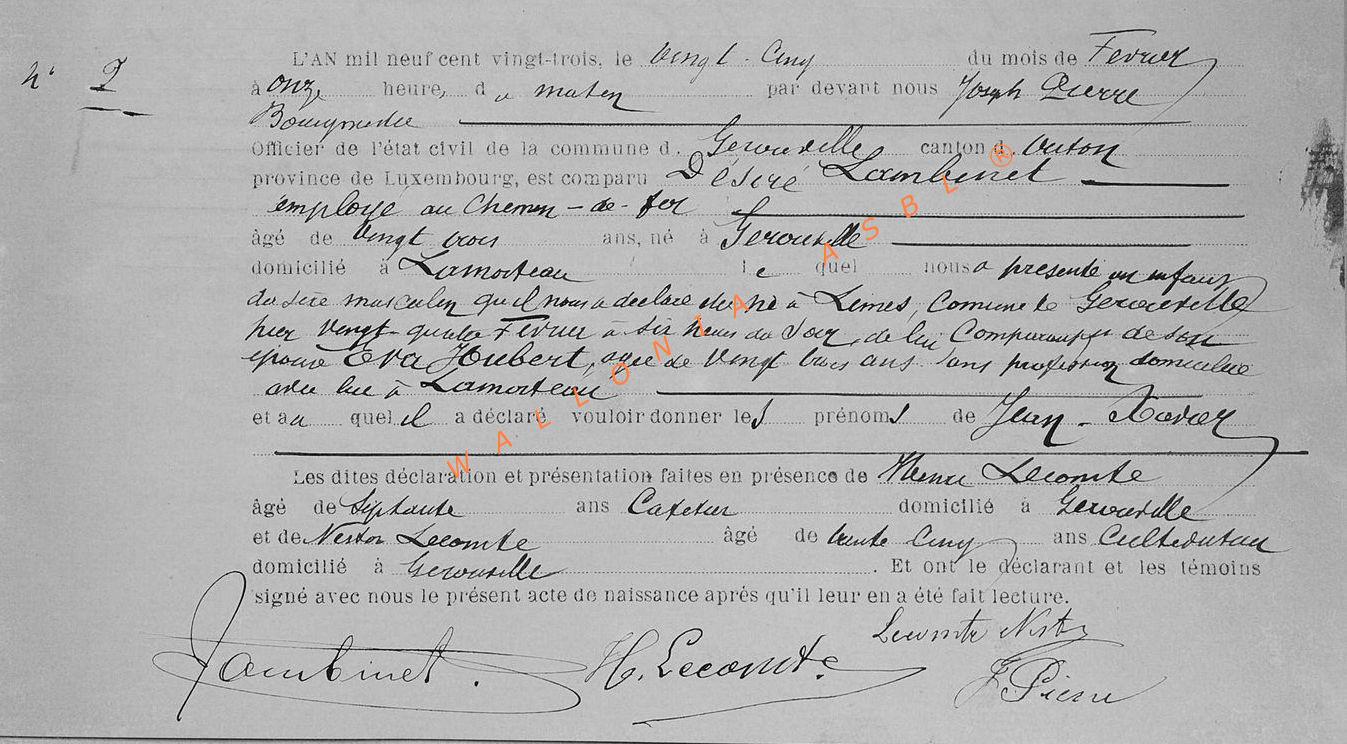 n° 2
L'AN mil neuf cent vingt-trois, le Vingt-Cinq du mois de Fevrier
à onze heures, du matin par devant nous Joseph Pierre
Bourgmestre
Officier de l'état civil de la commune d. Gerouville canton d. Virton
province de Luxembourg, est comparu Désiré Lambinet
employe au Chemin-de-fer
âgé de Vingt trois ans, né à Gerouville
domicilié à Lamorteau le quel nous a présenté un enfant
du sexe masculin qu'il nous a déclaré être né à Limes, Comune de Gerouville
hier Vingt-quatre Fevrier à six heures du Soir, de lui Comparant et de son
épouse Eva Hubert, agée de Vingt trois ans sans profession domiciliée
avec lui à Lamorteau
et au quel il a déclaré vouloir donner les prénoms de Jean-Xavier
Les dites déclaration et présentation faites en présence de Henri Lecomte
âgé de Septante ans Cafetier domicilié à Gerouville
et de Nestor Lecomte âgé de trente Cinq ans Cultivateur
domicilié à Gerouville. Et ont le déclarant et les témoins
signé avec nous le présent acte de naissance après qu'il leur en a été fait lecture.
Lecomte Nestor
Lambinet. H. Lecomte
J. Pierre
WALLONIA ASBL ®